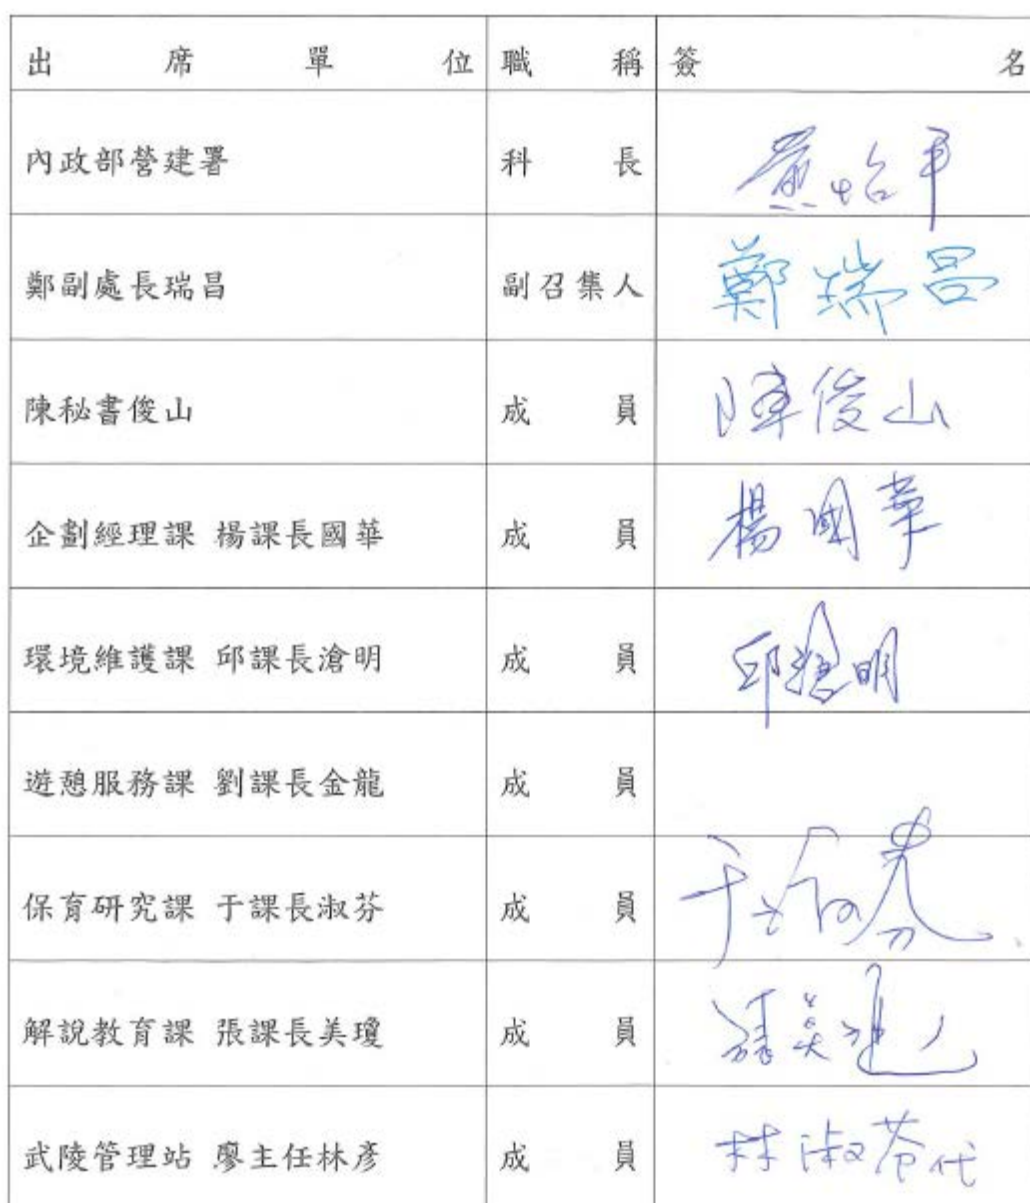 出席單位 職稱 簽名
內政部營建署 科長
鄭副處長瑞昌 副召集人 鄭瑞昌
陳秘書俊山 成員 陳俊山
企劃經理課 楊課長國華 成員 楊國華
環境維護課 邱課長滄明 成員 邱滄明
遊憩服務課 劉課長金龍 成員
保育研究課 于課長淑芬 成員 于淑芬
解說教育課 張課長美瓊 成員
武陵管理站 廖主任林彥 成員 林淑苓代